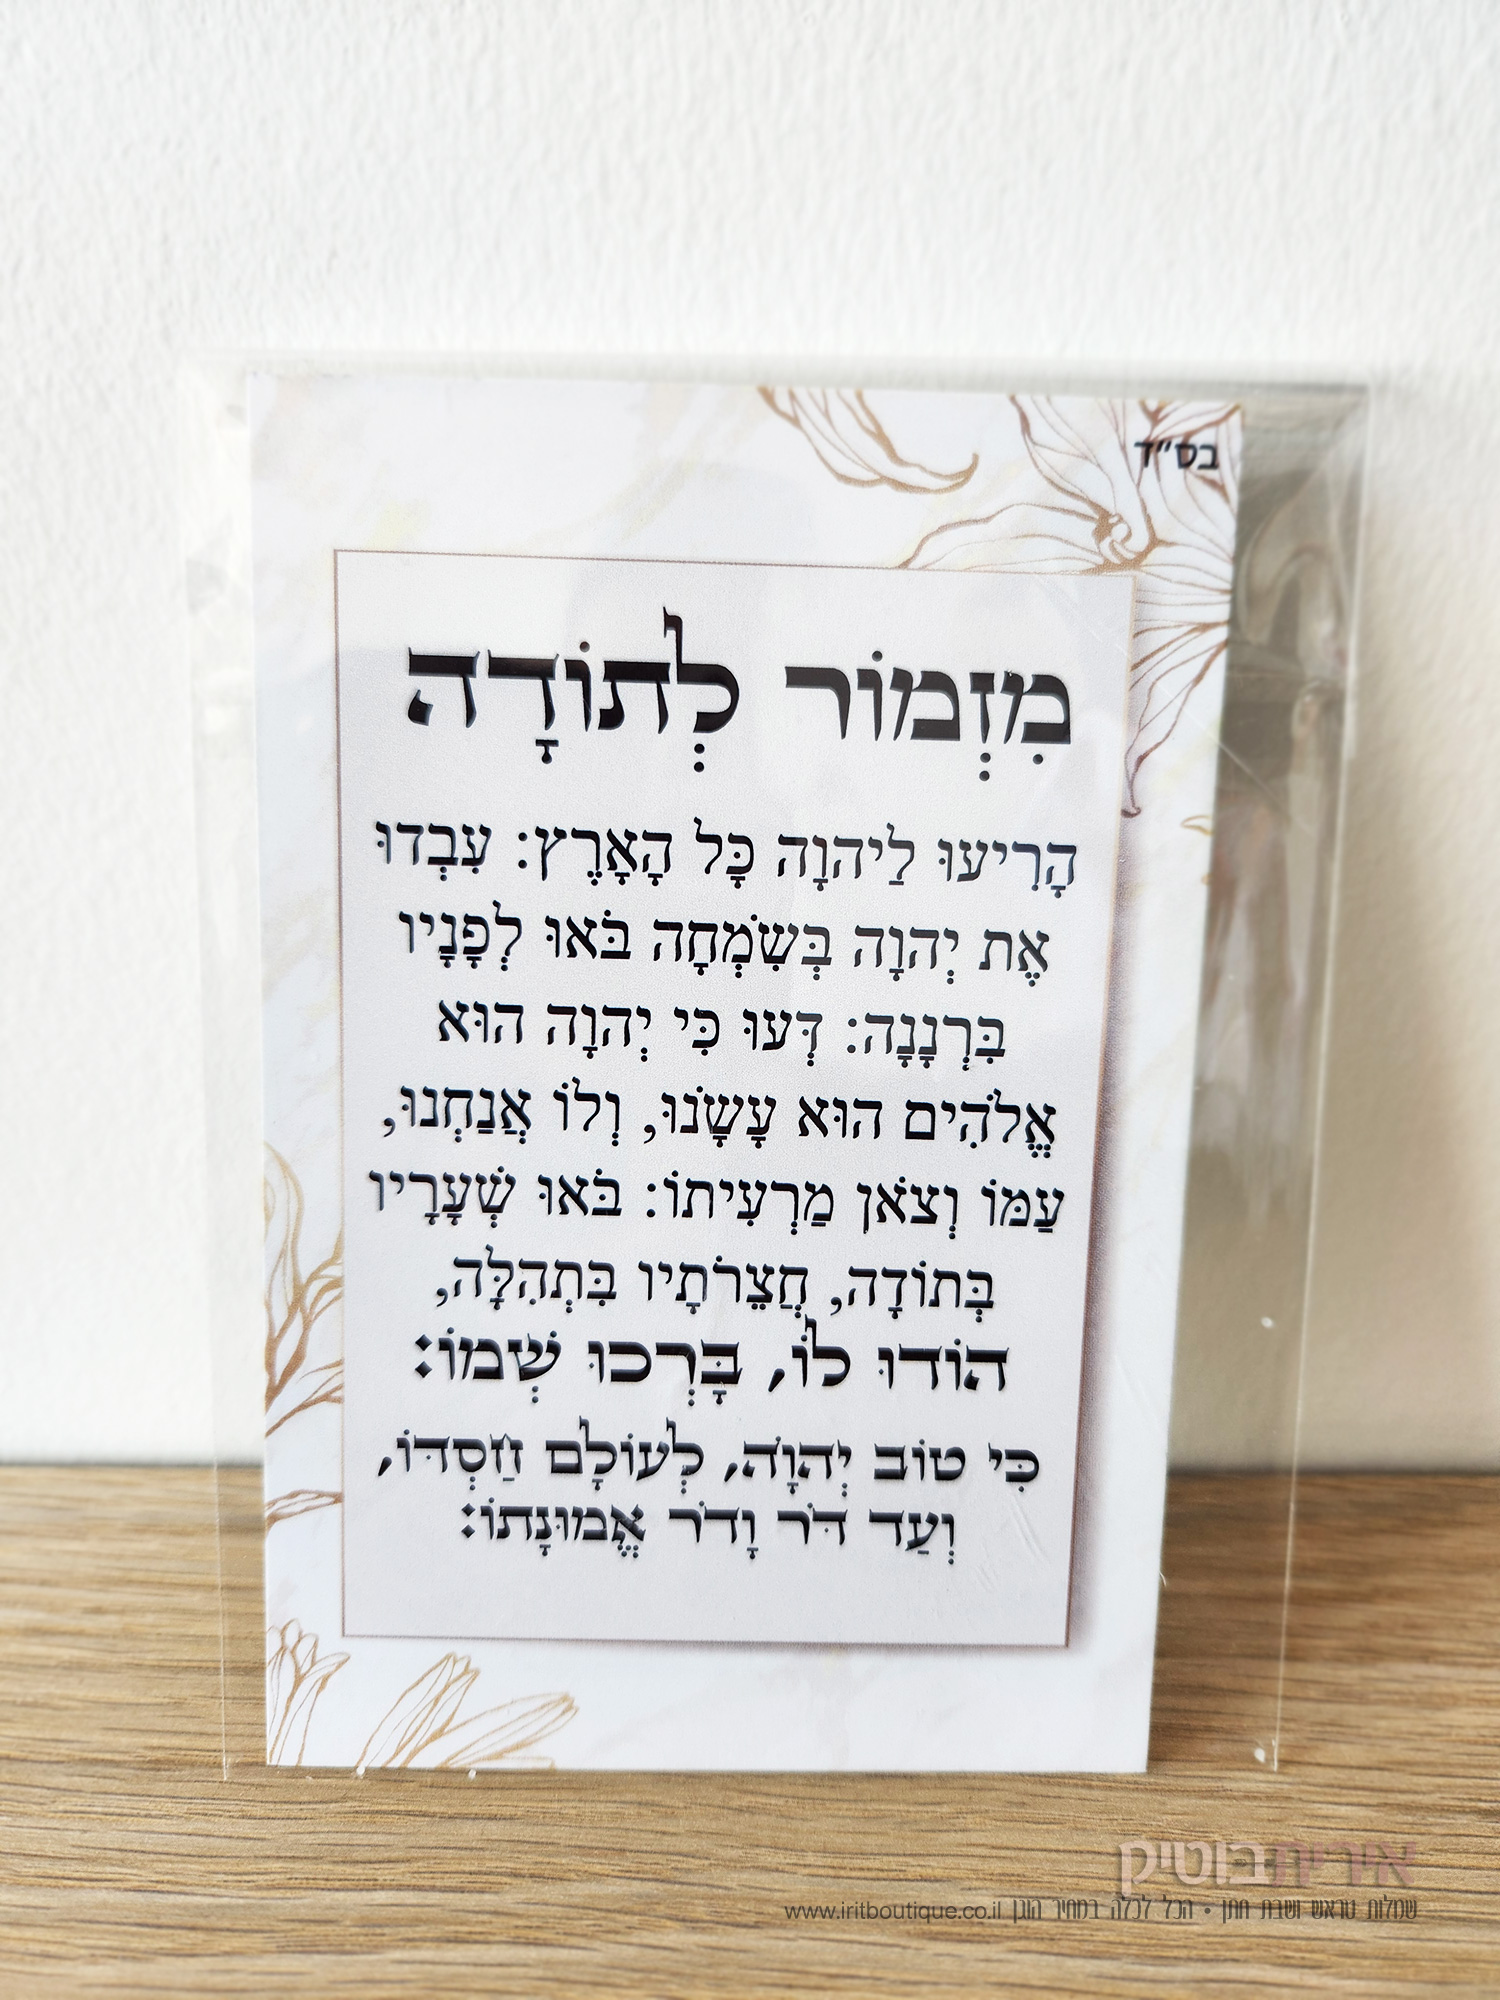 בס״ד
מִזְמוֹר לְתוֹדָה
הָרִיעוּ לַיהוָה כָּל הָאָרֶץ: עִבְדוּ
אֶת יְהוָה בְּשִׂמְחָה בֹּאוּ לְפָנָיו
בִּרְנָנָה: דְּעוּ כִּי יְהוָה הוּא
אֱלֹהִים הוּא עָשָׂנוּ, וְלוֹ אֲנַחְנוּ,
עַמּוֹ וְצֹאן מַרְעִיתוֹ: בֹּאוּ שְׁעָרָיו
בְּתוֹדָה, חֲצֵרֹתָיו בִּתְהִלָּה,
הוֹדוּ לוֹ, בָּרְכוּ שְׁמוֹ:
כִּי טוֹב יְהוָה, לְעוֹלָם חַסְדּוֹ,
וְעַד דֹּר וָדֹר אֱמוּנָתוֹ:
איריתבוטיק
שמלות טראש ושבת חתן • הכל לכלה במחיר הוגן www.iritboutique.co.il